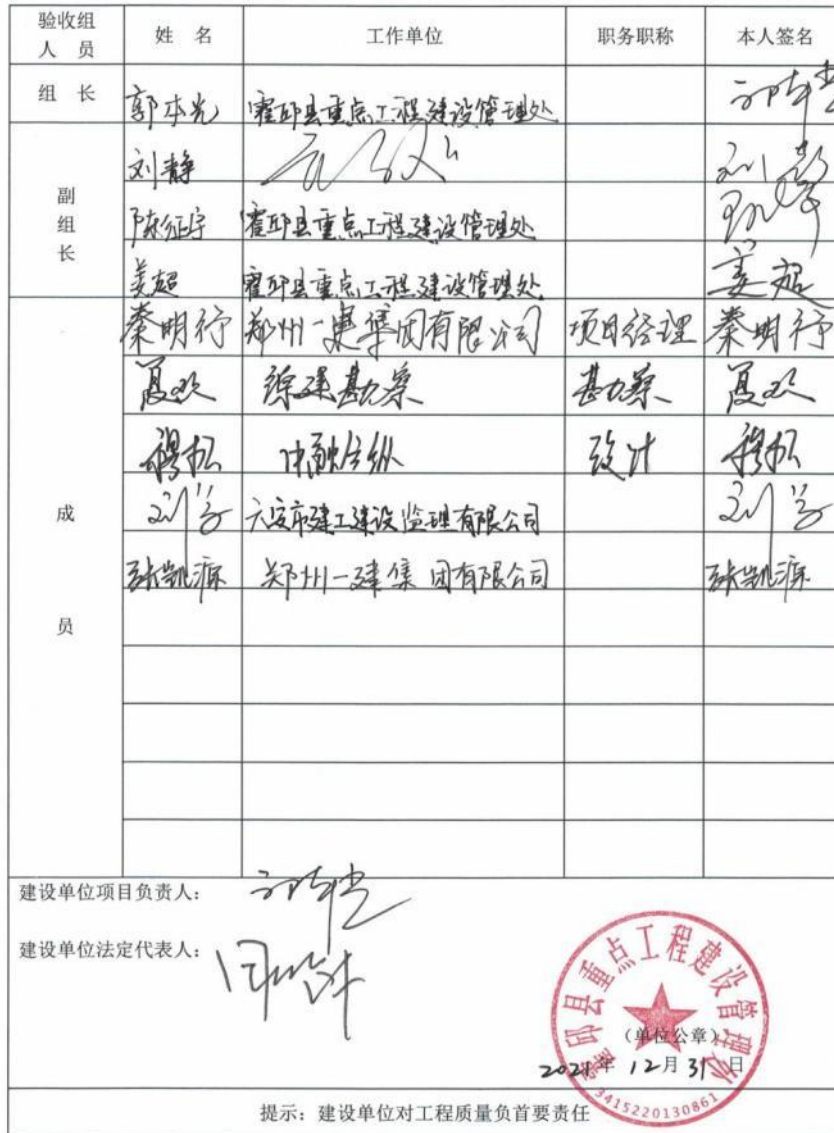 验收组人员 姓 名 工作单位 职务职称 本人签名
组 长 郭本光 霍邱县重点工程建设管理处 郭本光
副组长 刘静 刘静
陈征宇 霍邱县重点工程建设管理处
姜超 霍邱县重点工程建设管理处 姜超
成员 秦明行 郑州一建集团有限公司 项目经理 秦明行
夏欢 综建勘察 勘察 夏欢
穆松 设计 穆松
刘学 六安市建工建设监理有限公司 刘学
张凯源 郑州一建集团有限公司 张凯源
建设单位项目负责人: 郭本光
建设单位法定代表人:
霍邱县重点工程建设管理处
(单位公章)
2021年12月31日
3415220130861
提示: 建设单位对工程质量负首要责任